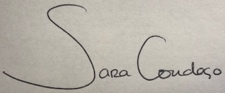 Sara Cardoso